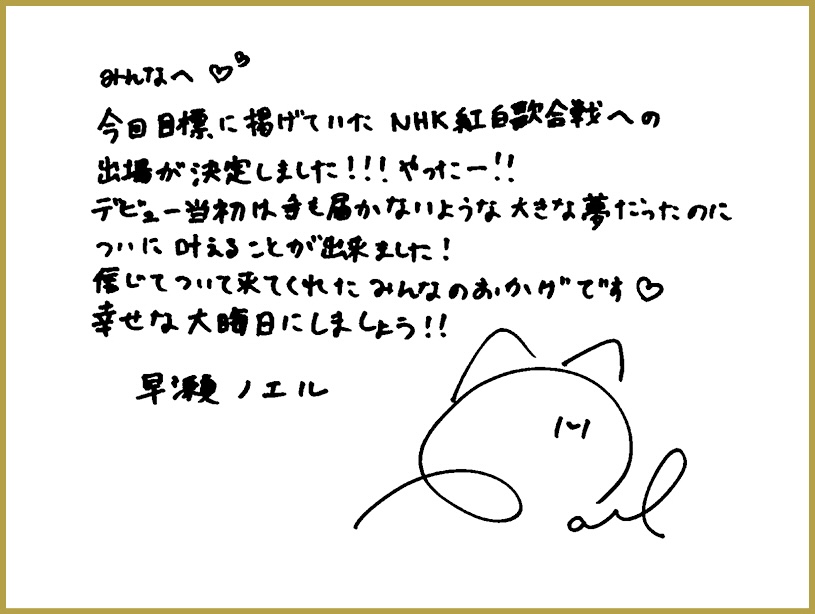 みんなへ♡
今回目標に掲げていたNHK紅白歌合戦への
出場が決定しました!!!やったー!!
デビュー当初は手も届かないような大きな夢だったのに
ついに叶えることが出来ました!
信じてついて来てくれたみんなのおかげです♡
幸せな大晦日にしましょう!!
早瀬ノエル